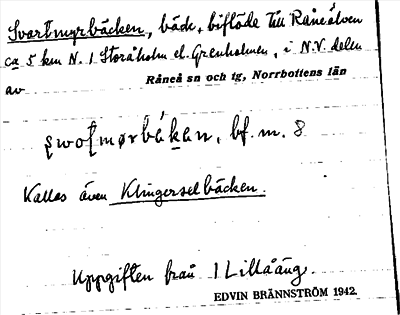 Svartmyrbäcken, bäck, biflöde till Råneälven
ca 5 km N. 1 Storåholm el. Grenholmen, i N.V. delen
av
Råneå sn och tg, Norrbottens län
bf. m. 8
Kallas även Klingerselbäcken.
Uppgiften från 1 Lillåäng.
EDVIN BRÄNNSTRÖM 1942.